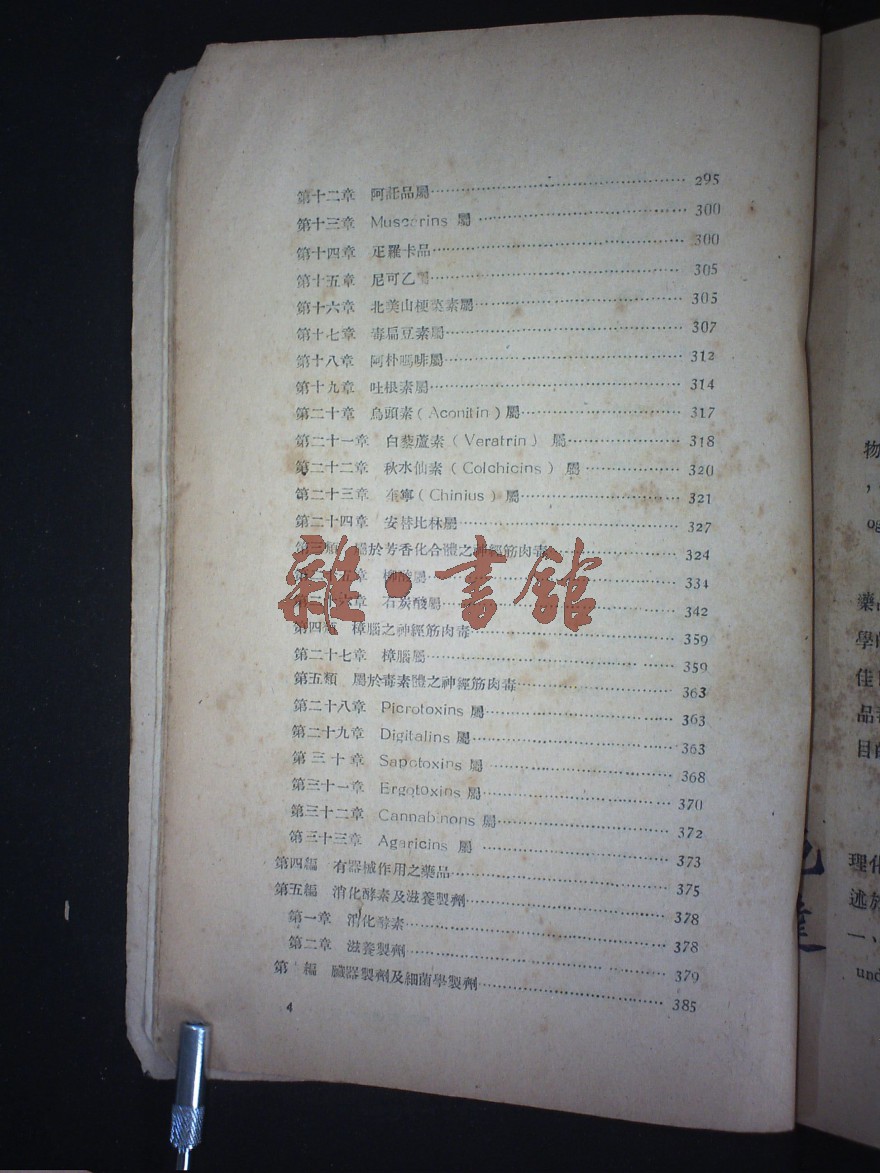 第十二章 阿託品屬 295
第十三章 Muscarins 屬 300
第十四章 疋羅卡品 300
第十五章 尼可乙屬 305
第十六章 北美山梗菜素屬 305
第十七章 毒扁豆素屬 307
第十八章 阿朴嗎啡屬 312
第十九章 吐根素屬 314
第二十章 烏頭素(Aconitin)屬 317
第二十一章 白藜蘆素(Veratrin) 屬 318
第二十二章 秋水仙素(Colchicins) 屬 320
第二十三章 奎寧(Chinius)屬 321
第二十四章 安替比林屬 327
第三類 屬於芳香化合體之神經筋肉毒 324
第二十五章 柳酸屬 334
第二十六章 石炭酸屬 342
第四類 樟腦之神經筋肉毒 359
第二十七章 樟腦屬 359
第五類 屬於毒素體之神經筋肉毒 363
第二十八章 Picrotoxins 屬 363
第二十九章 Digitalins 屬 363
第三十章 Sapotoxins 屬 368
第三十一章 Ergotoxins 屬 370
第三十二章 Cannabinons 屬 372
第三十三章 Agaricins 屬 373
第四編 有器械作用之藥品 375
第五編 消化酵素及滋養製劑 378
第一章 消化酵素 378
第二章 滋養製劑 379
第 編 臟器製劑及細菌學製劑 385
4
雜·書館
物
藥品
學的
佳
品毒
目的
理化
述於
一、
und